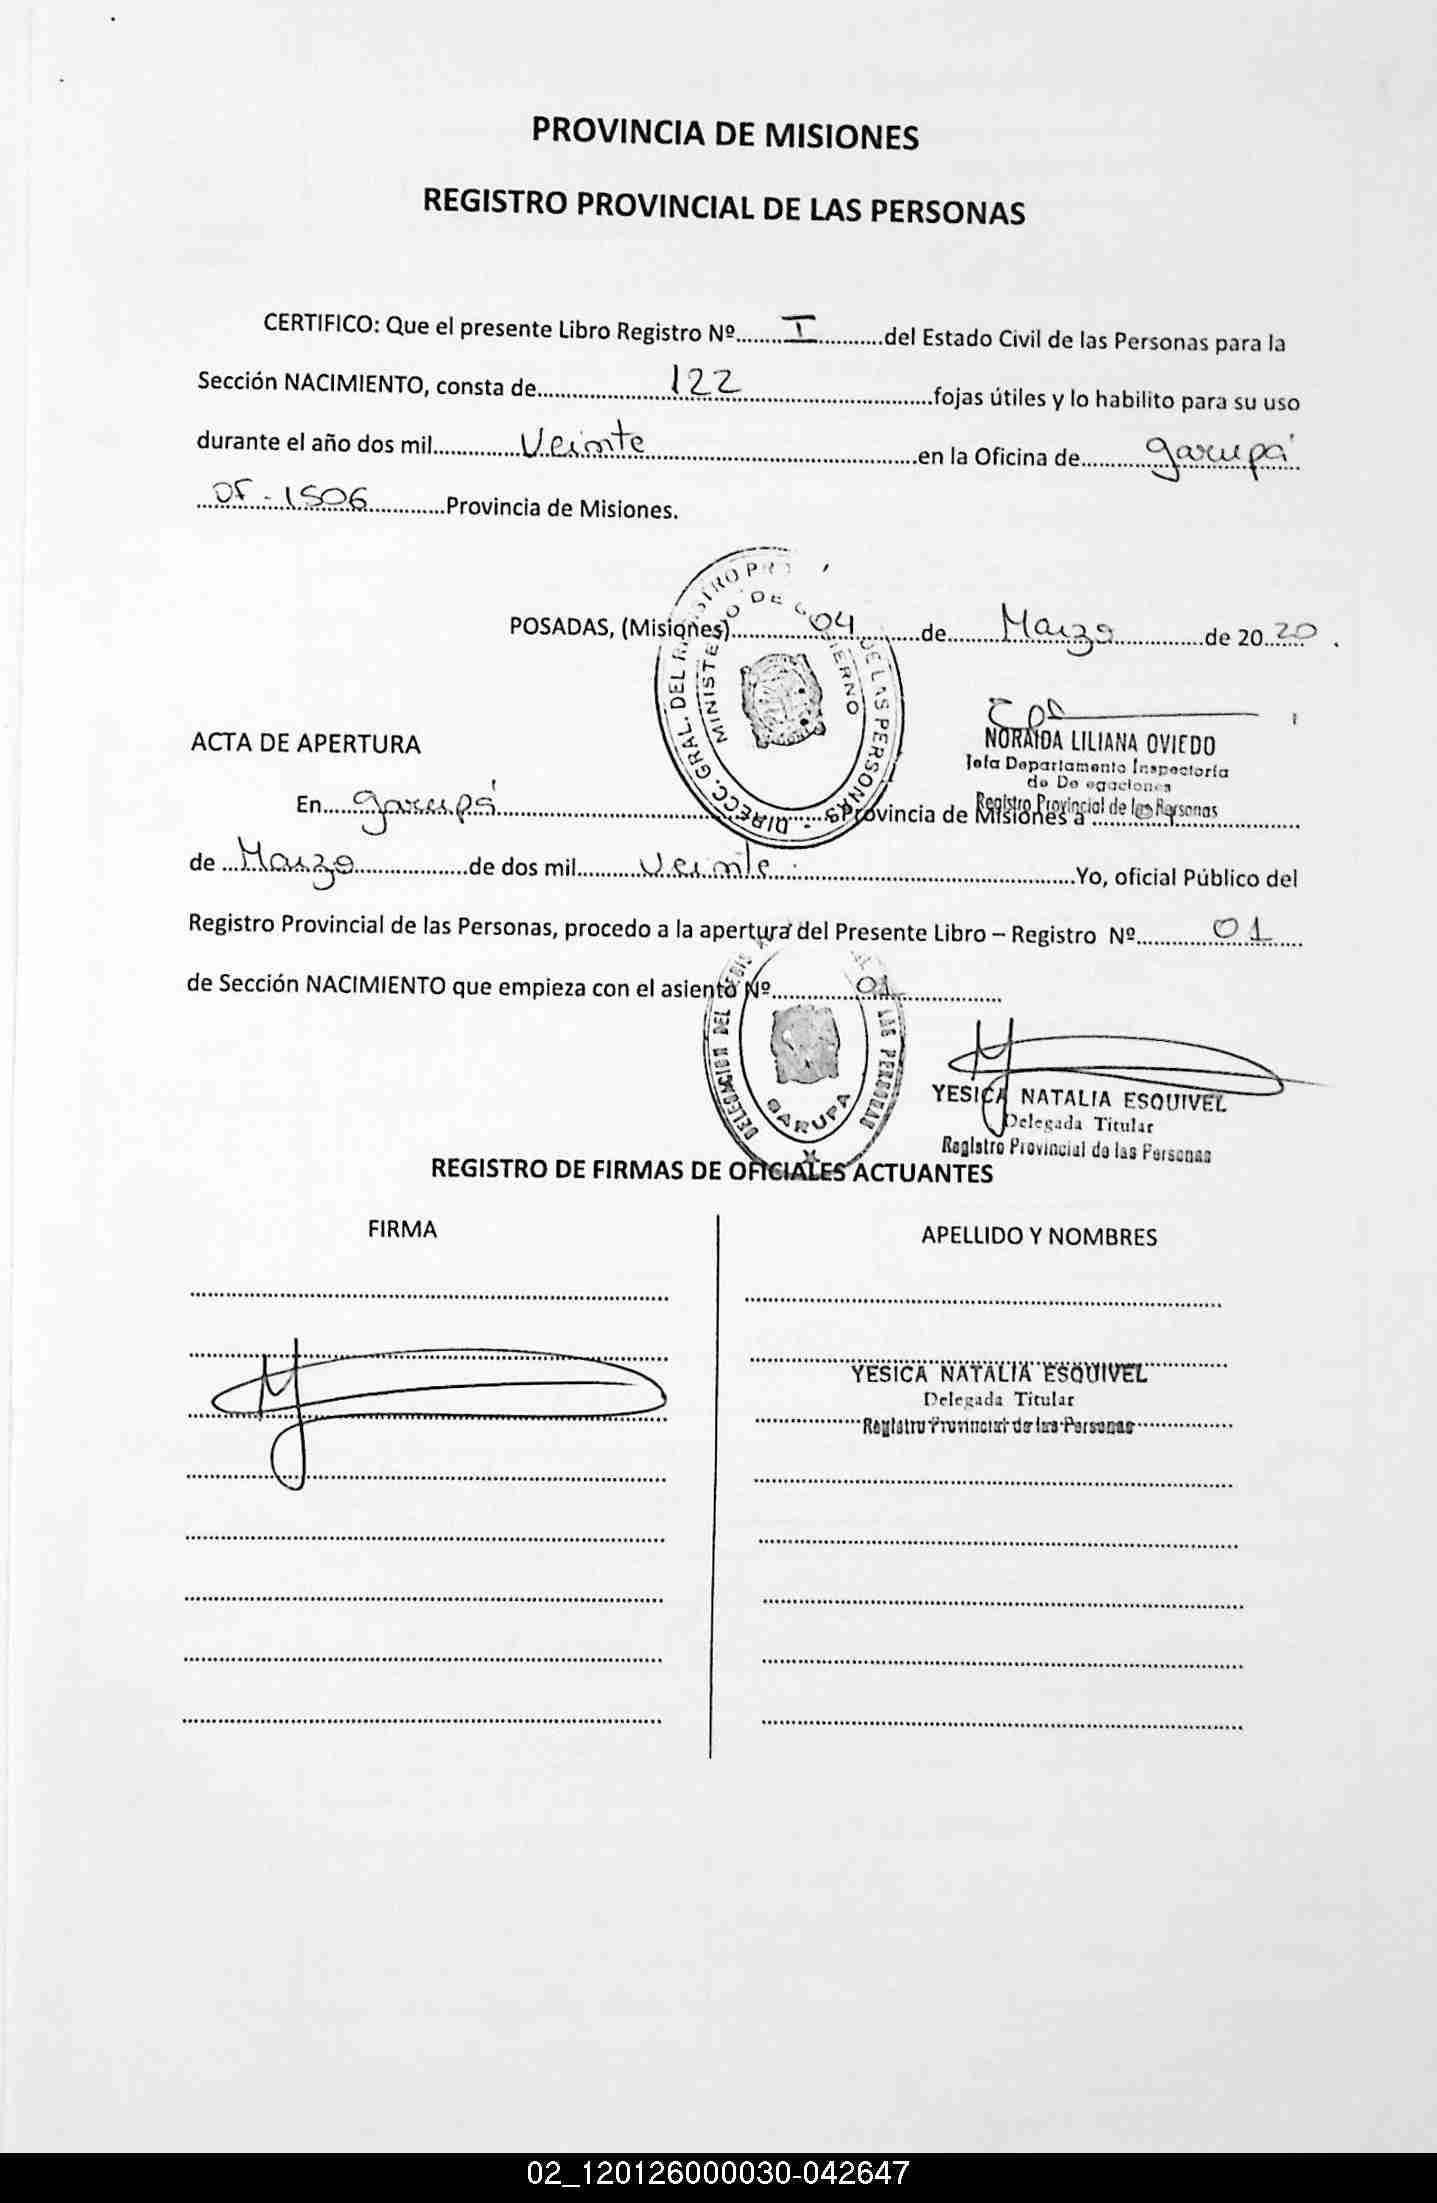 PROVINCIA DE MISIONES
REGISTRO PROVINCIAL DE LAS PERSONAS
CERTIFICO: Que el presente Libro Registro Nº........I...........del Estado Civil de las Personas para la
Sección NACIMIENTO, consta de........122........fojas útiles y lo habilito para su uso
durante el año dos mil........Veinte........en la Oficina de........Garupá
OF-1506........Provincia de Misiones.
POSADAS, (Misiones)........04........de........Marzo........de 2020.
DIRECC. GRAL. DEL REGISTRO PRO DE LAS PERSONAS
MINISTERIO DE GOBIERNO
NORAIDA LILIANA OVIEDO
Jefa Departamento Inspectoría
de De egaciones
Registro Provincial de las Personas
ACTA DE APERTURA
En........Garupá........Provincia de Misiones a........
de........Marzo........de dos mil........Veinte........Yo, oficial Público del
Registro Provincial de las Personas, procedo a la apertura del Presente Libro – Registro Nº........01
de Sección NACIMIENTO que empieza con el asiento Nº........01........
DELEGACION DEL LAS PERSONAS
GARUPA
YESICA NATALIA ESQUIVEL
Delegada Titular
Registro Provincial de las Personas
REGISTRO DE FIRMAS DE OFICIALES ACTUANTES
FIRMA
APELLIDO Y NOMBRES
YESICA NATALIA ESQUIVEL
Delegada Titular
Registro Provincial de las Personas
02_120126000030-042647